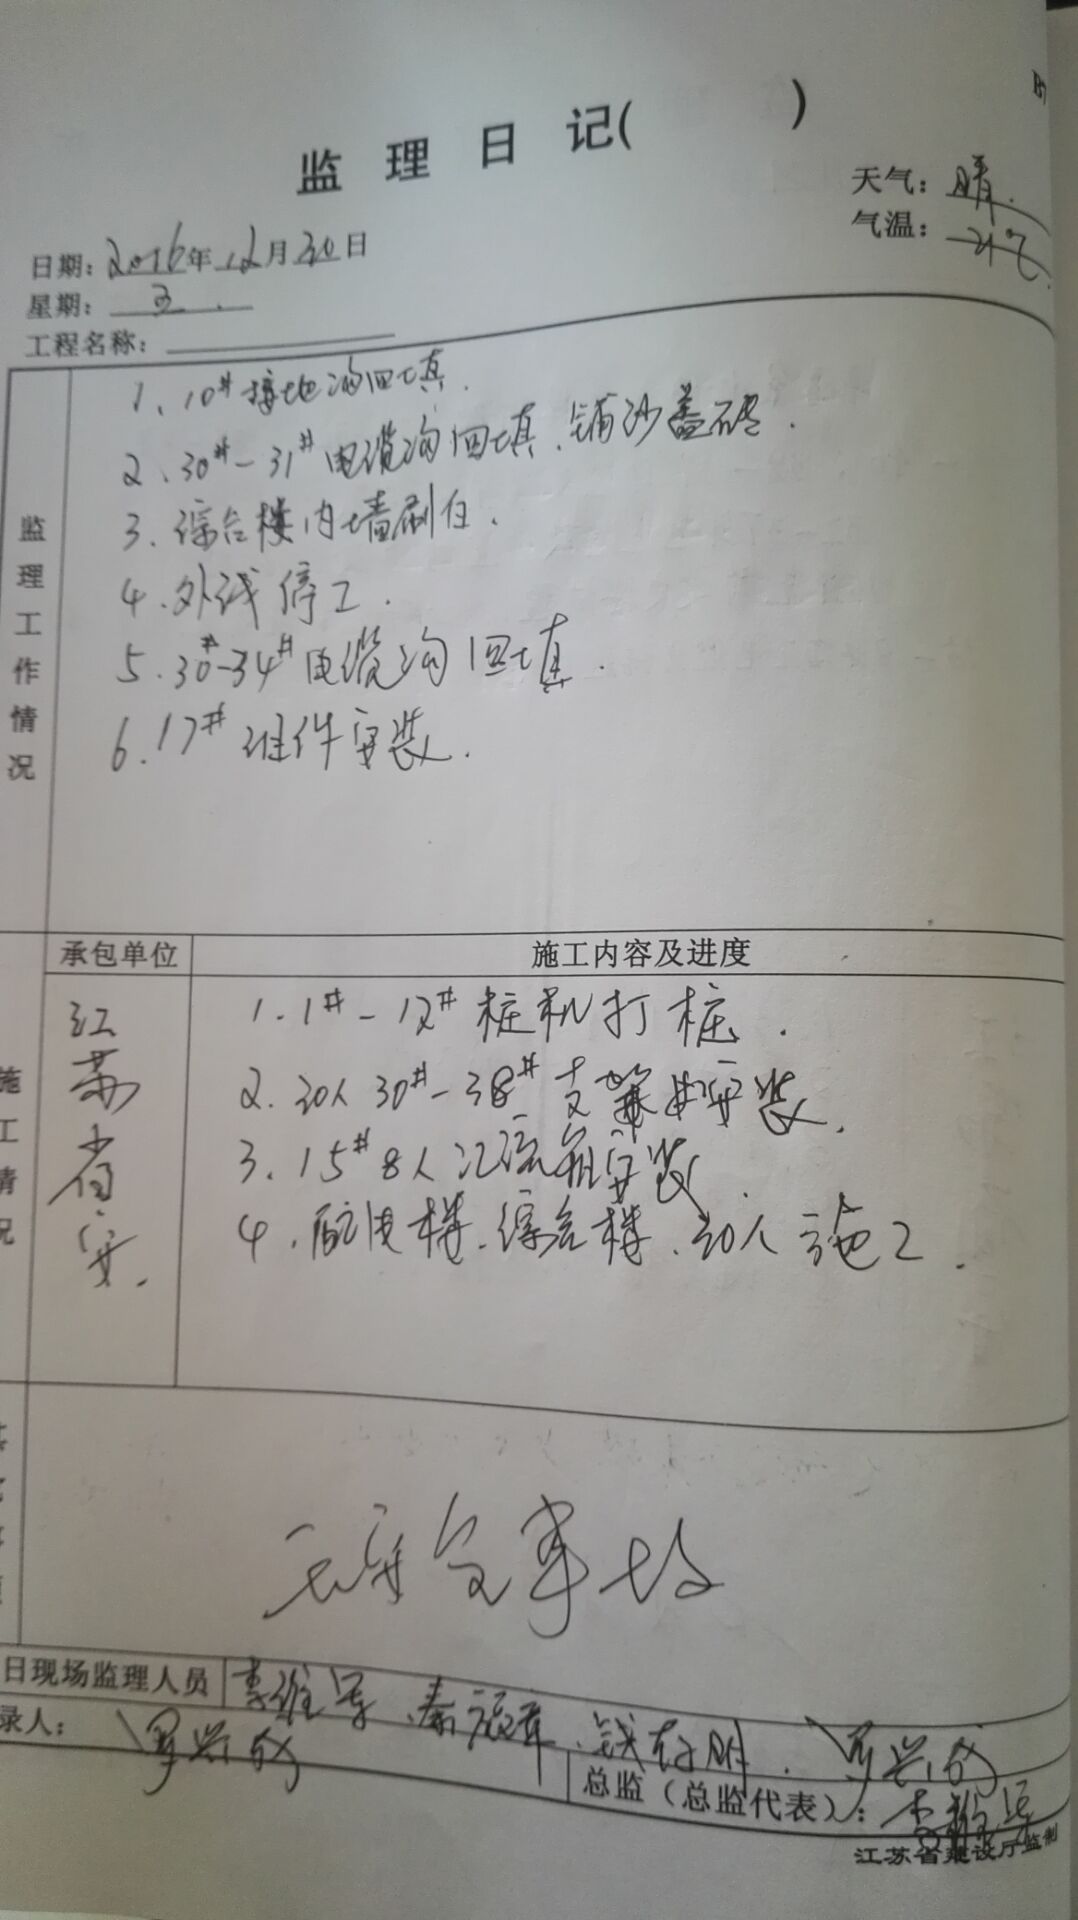 监理日记( )
天气：晴.
气温：
日期：2016年12月30日
星期：五.
工程名称：
监理工作情况
1、10#接地沟回填.
2、30#-31#电缆沟回填、铺沙盖砖.
3、综合楼内墙刷白.
4、外线停工.
5、30#-34#电缆沟回填.
6、17#组件安装.
承包单位
施工内容及进度
施工情况
江苏省安.
1、1#-12#桩机打桩.
2、30人30#-38#支架安装.
3、15#8人汇流箱安装.
4、配电楼、综合楼、30人施工.
无安全事故
日现场监理人员
录人：
罗兴
总监（总监代表）：
江苏省建设厅监制